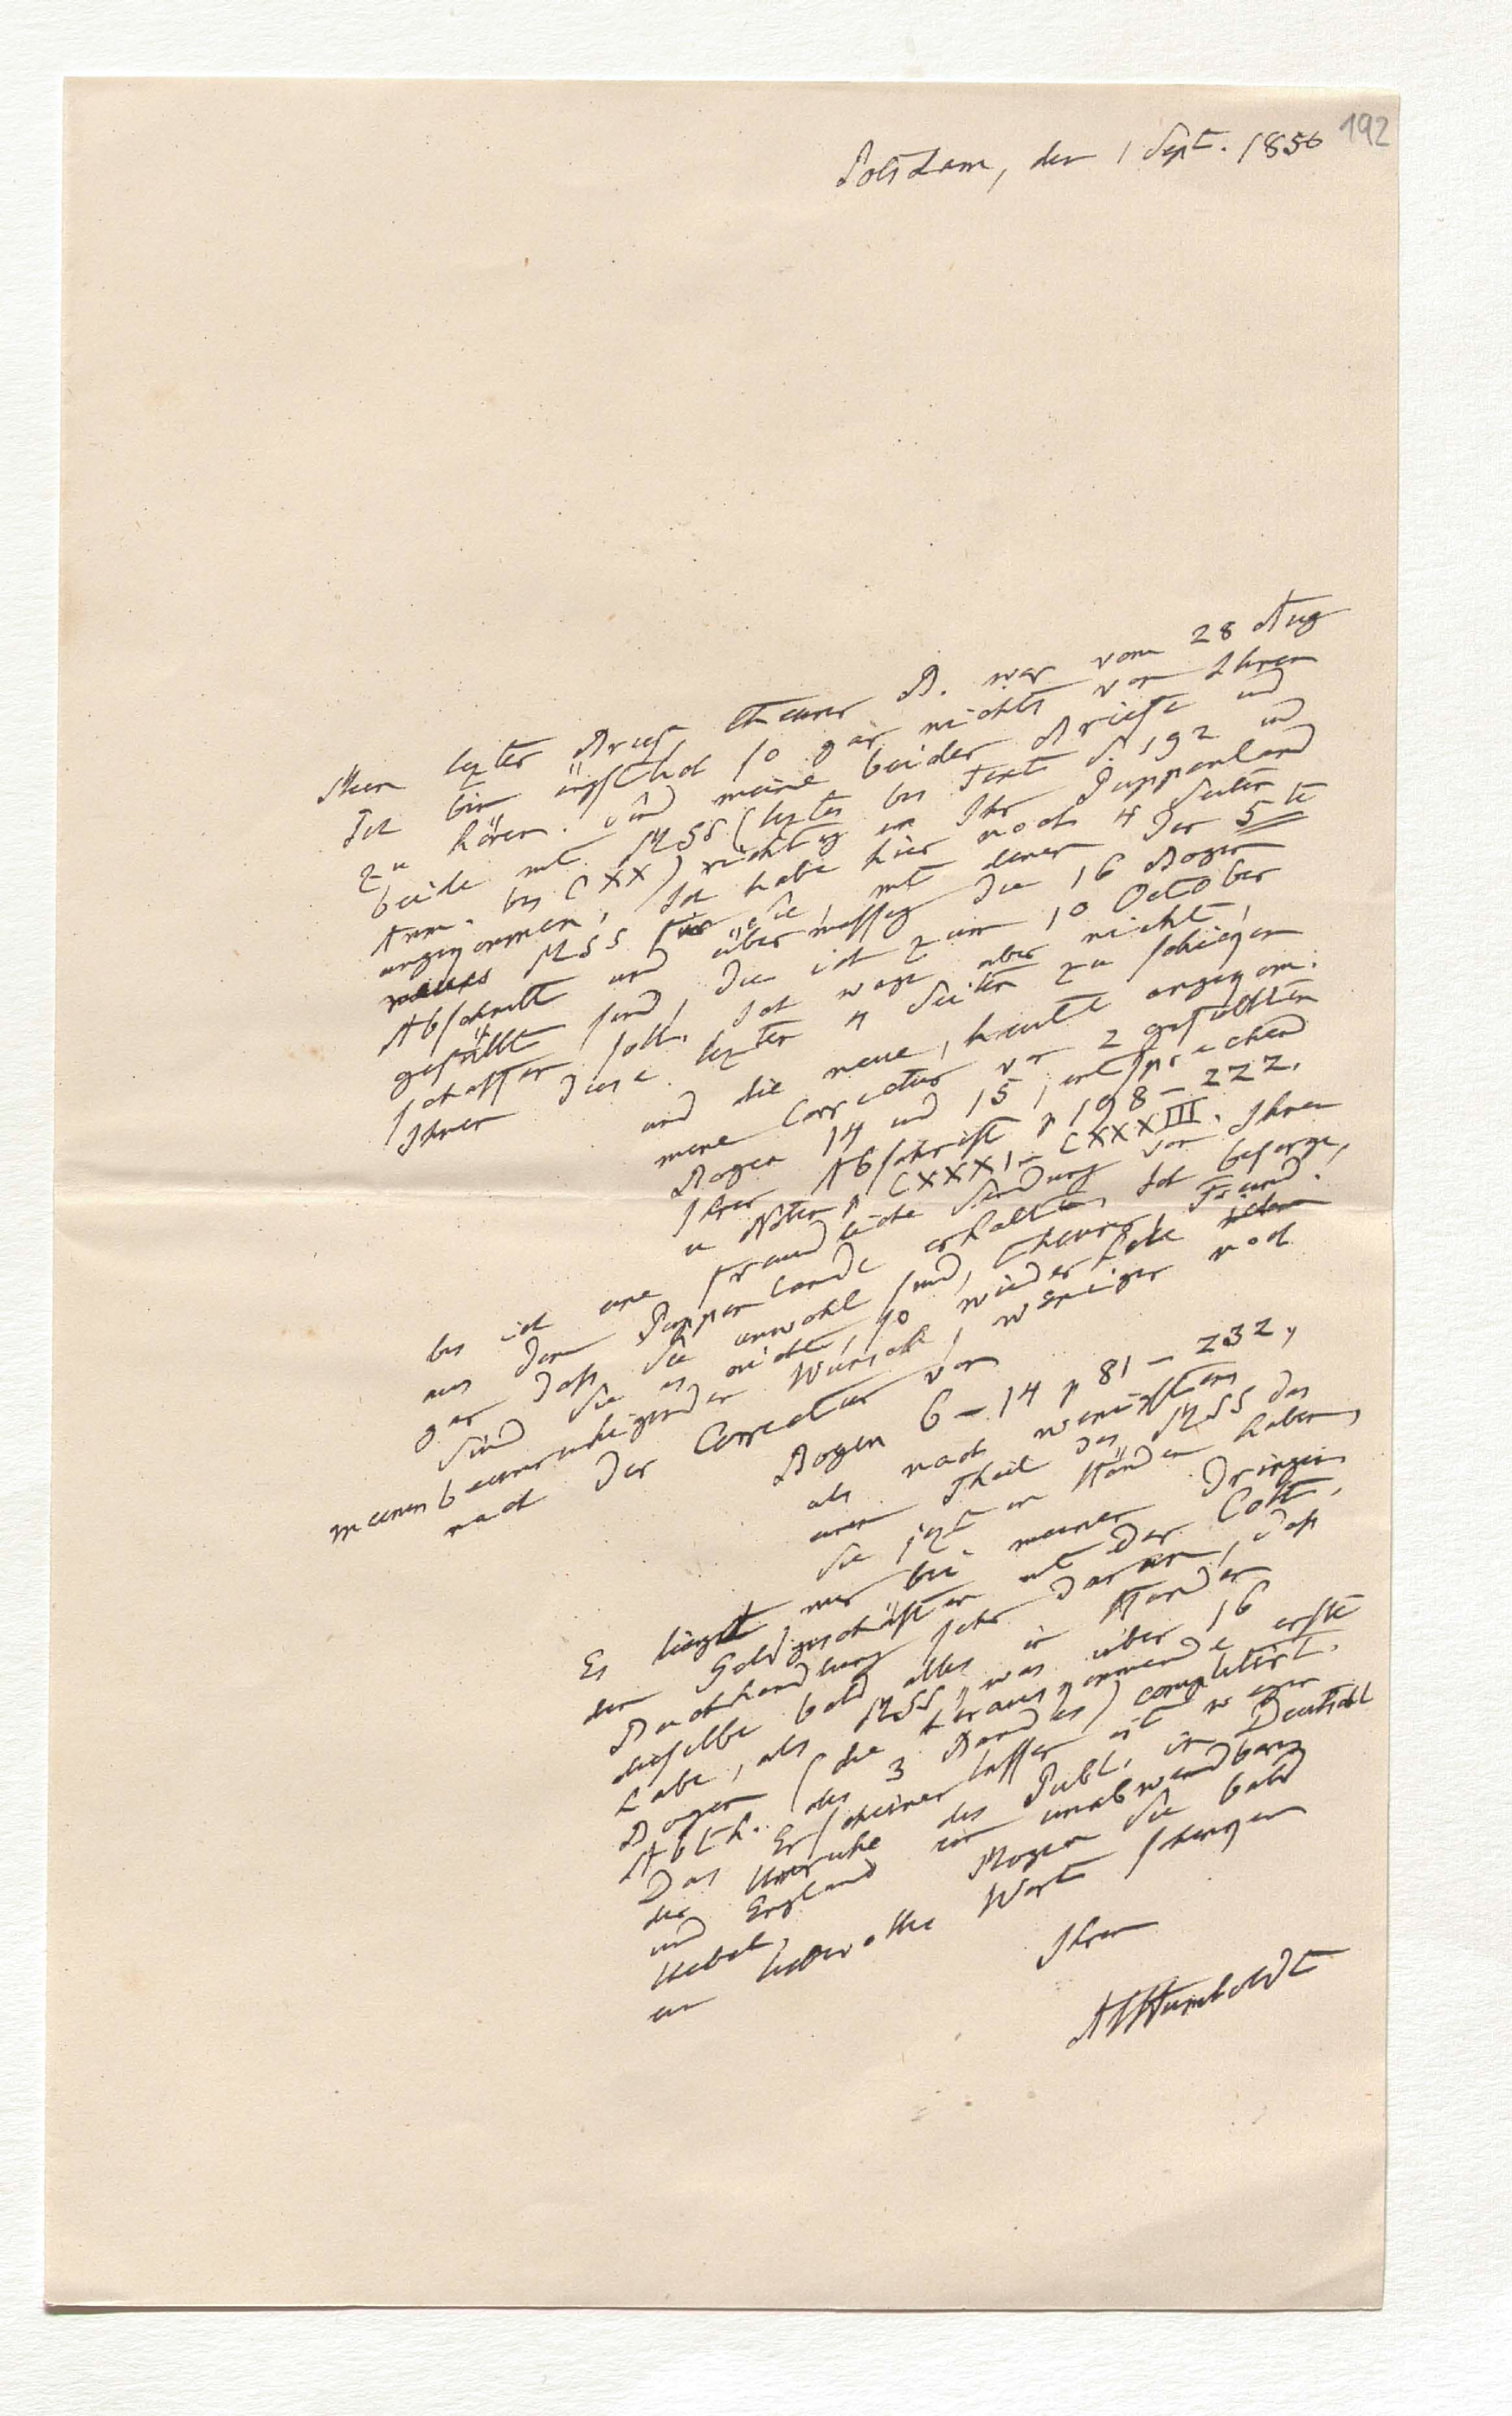 192
Potsdam, den 1 Sept. 1856
Mein lezter Brief theurer B. war vom 28 Aug
Ich bin ängstlich so gar nichts von Ihnen
zu hören. Sind meine beiden Briefe und
beide mit MSS (leztes bis Text S. 192 und
Anm. bis CXX) richtig in Ihr Puppenland
angekommen, Ich habe hier noch 4 Seiten
MSS für Sie, mit denen der 5te
Abschnitt und übermässig die 16 Bogen
gefüllt sind, die ich zum 10 October
schaffen soll. Ich wage aber nicht,
Ihnen diese lezten 4 Seiten zu schicken
und die neue, heute angekom:
mene Correctur von 2 gefüllten
Bogen 14 und 15, entsprechend
Ihrer Abschrift p 198–222.
u Noten p CXXXI–CXXXIII.
bis ich eine freundliche Sendung von Ihnen
aus dem Puppenlande erhalten, Ich besorge,
gar daß Sie unwohl sind, theurer Freund.
Sind Sie es nicht, so wiederhole ich
meinen beunruhigenden Wunsch, weniger noch
nach der Correctur von
Bogen 6–14 p 81–232,
als nach wenigstens
einem Theil des MSS das
Sie jezt in Händen haben,
Es liegt mir bei meinen dringen
den Geldgeschäften mit der Cott.
Buchhandlung sehr daran, daß
dieselbe bald alles in Händen
habe, als MSS, was über 16
Bogen (die herauskommende erste
Abth. des 3 Bandes) completirt.
Das Erscheinen lassen ist wegen
der Unruhe des Publ. in Deutschl
und England ein unabwendbares
Uebel, Mögen Sie bald
ein liebevolles Wort schenken
Ihrem
AvHumboldt